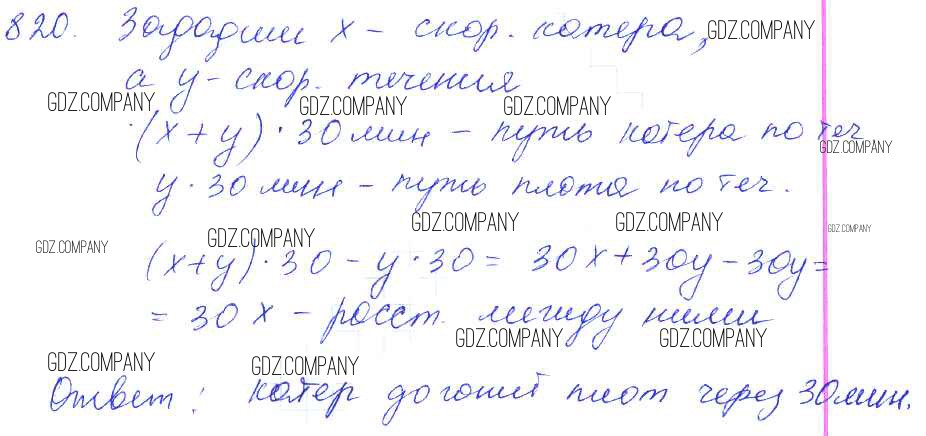 820. Зададим x – скор. катера, GDZ.COMPANY
а y – скор. течения
GDZ.COMPANY GDZ.COMPANY GDZ.COMPANY
(x + y) · 30 мин – путь катера по теч
GDZ.COMPANY
y · 30 мин – путь плота по теч.
GDZ.COMPANY GDZ.COMPANY GDZ.COMPANY
GDZ.COMPANY GDZ.COMPANY
(x+y) · 30 – y · 30 = 30x + 30y – 30y =
= 30x – расст. между ними
GDZ.COMPANY GDZ.COMPANY
GDZ.COMPANY GDZ.COMPANY
Ответ: катер догонит плот через 30 мин.